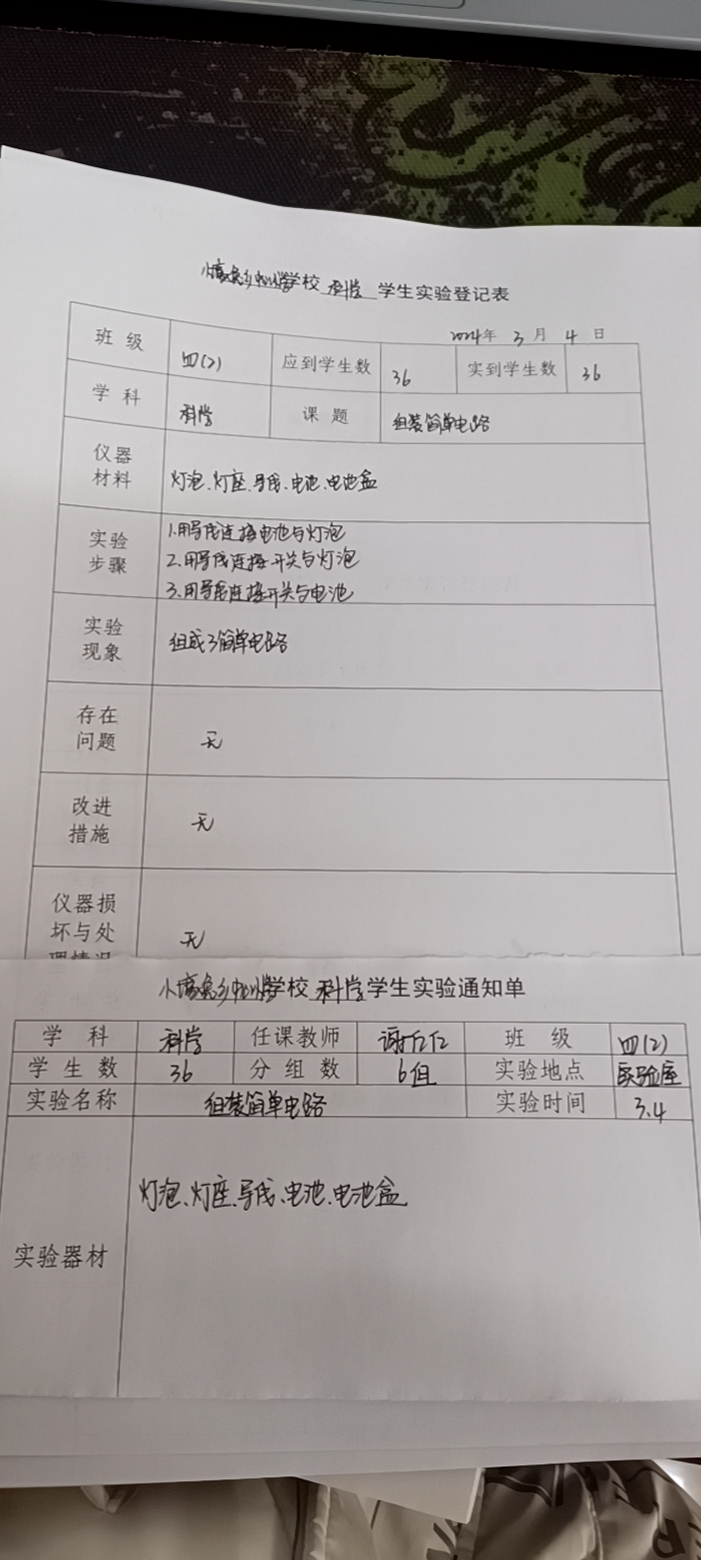 学校 科学 学生实验登记表
2024年 3月 4日
班级 四(2) 应到学生数 36 实到学生数 36
学科 科学 课题 组装简单电路
仪器材料 灯泡、灯座、导线、电池、电池盒
实验步骤 1.用导线连接电池与灯泡
2.用导线连接开关与灯泡
3.用导线连接开关与电池
实验现象 组成了简单电路
存在问题 无
改进措施 无
仪器损坏与处理情况 无
学校 科学 学生实验通知单
学科 科学 任课教师 谢 班级 四(2)
学生数 36 分组数 6组 实验地点 实验室
实验名称 组装简单电路 实验时间 3.4
实验器材 灯泡、灯座、导线、电池、电池盒